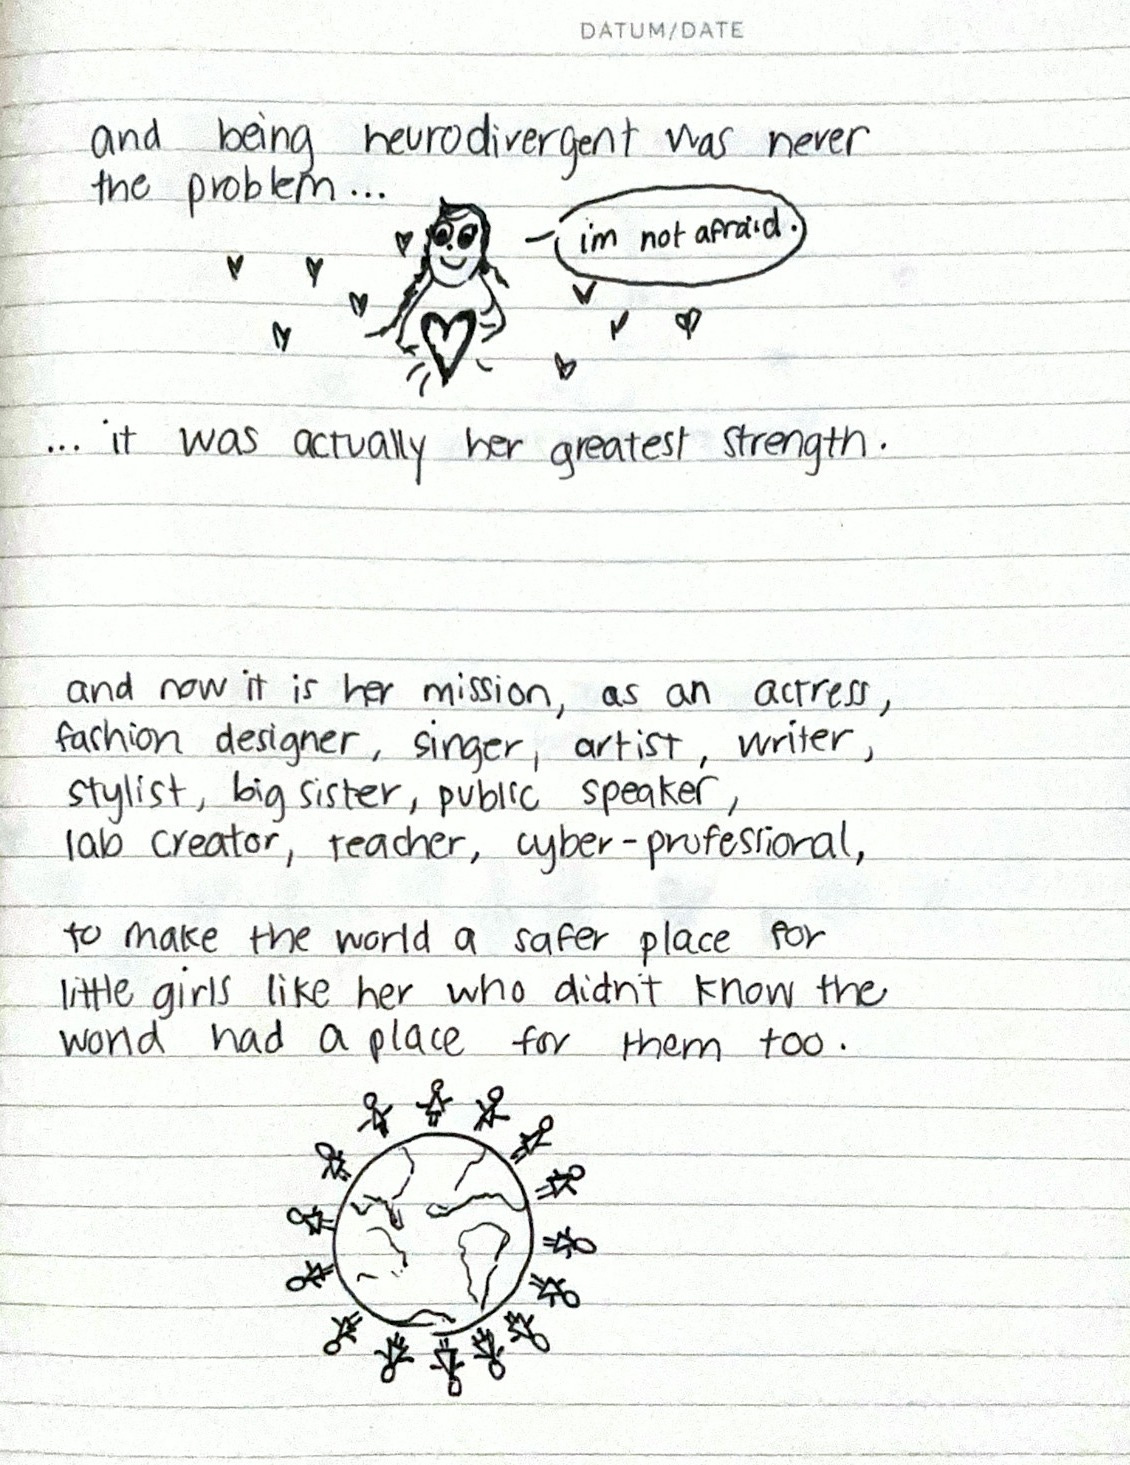 DATUM/DATE
and being neurodivergent was never
the problem...
im not afraid.
... it was actually her greatest strength.
and now it is her mission, as an actress,
fashion designer, singer, artist, writer,
stylist, big sister, public speaker,
lab creator, teacher, cyber-professional,
to make the world a safer place for
little girls like her who didn't know the
world had a place for them too.